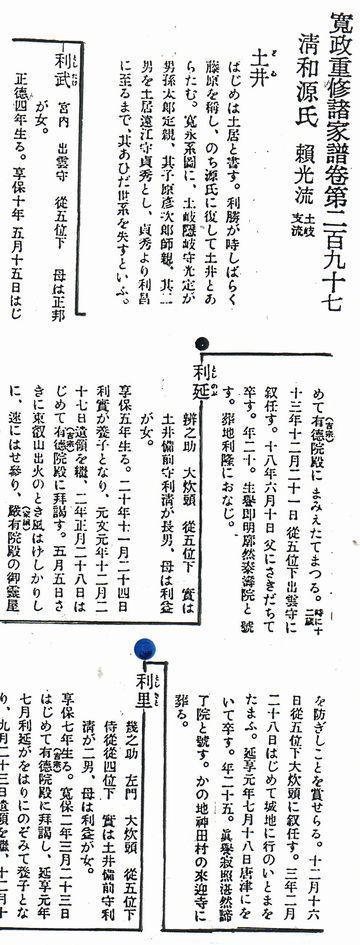 寛政重修諸家譜巻第二百九十七
清和源氏 頼光流 土岐支流
土井
どゐ
はじめは土居と書す。利勝が時しばらく
藤原を稱し、のち源氏に復して土井とあ
らたむ。寛永系圖に、土岐隱岐守光定が
男孫太郎定親、其子原彦次郎師親、其二
男を土居遠江守貞秀とし、貞秀より利昌
に至るまで、其あひだ世系を失すといふ。
利武
としたけ
宮内 出雲守 從五位下 母は正邦
が女。
正德四年生る。享保十年五月十五日はじ
めて有德院殿(吉宗)にまみえたてまつる。時に十二歳
十三年十二月二十一日從五位下出雲守に
叙任す。十八年六月十日父にさきだちて
卒す。年二十。生譽即明廓然泰濤院と號
す。葬地利隆におなじ。
利延
としのぶ
辨之助 大炊頭 從五位下 實は
土井備前守利淸が長男、母は利益
が女。
享保五年生る。二十年十一月二十四日
利實が養子となり、元文元年十二月二
十七日遺領を繼、二年正月二十八日は
じめて有德院殿(吉宗)に拜謁す。五月五日さ
きに東叡山出火のとき風はけしかりし
に、速にはせ參り、嚴有院殿(家綱)の御靈屋
を防ぎしことを賞せらる。十二月十六
日從五位下大炊頭に叙任す。三年二月
二十八日はじめて城地に行のいとまを
たまふ。延享元年七月十八日唐津にを
いて卒す。年二十五。眞譽寂照湛然諦
了院と號す。かの地神田村の來迎寺に
葬る。
利里
としさと
幾之助 左門 大炊頭 從五位下
侍從從四位下 實は土井備前守利
淸が二男、母は利益が女。
享保七年生る。寛保二年三月二十三日
はじめて有德院殿(吉宗)に拜謁し、延享元年
七月利延がをはりにのぞみて養子とな
り、九月二十三日遺領を繼、十二月十